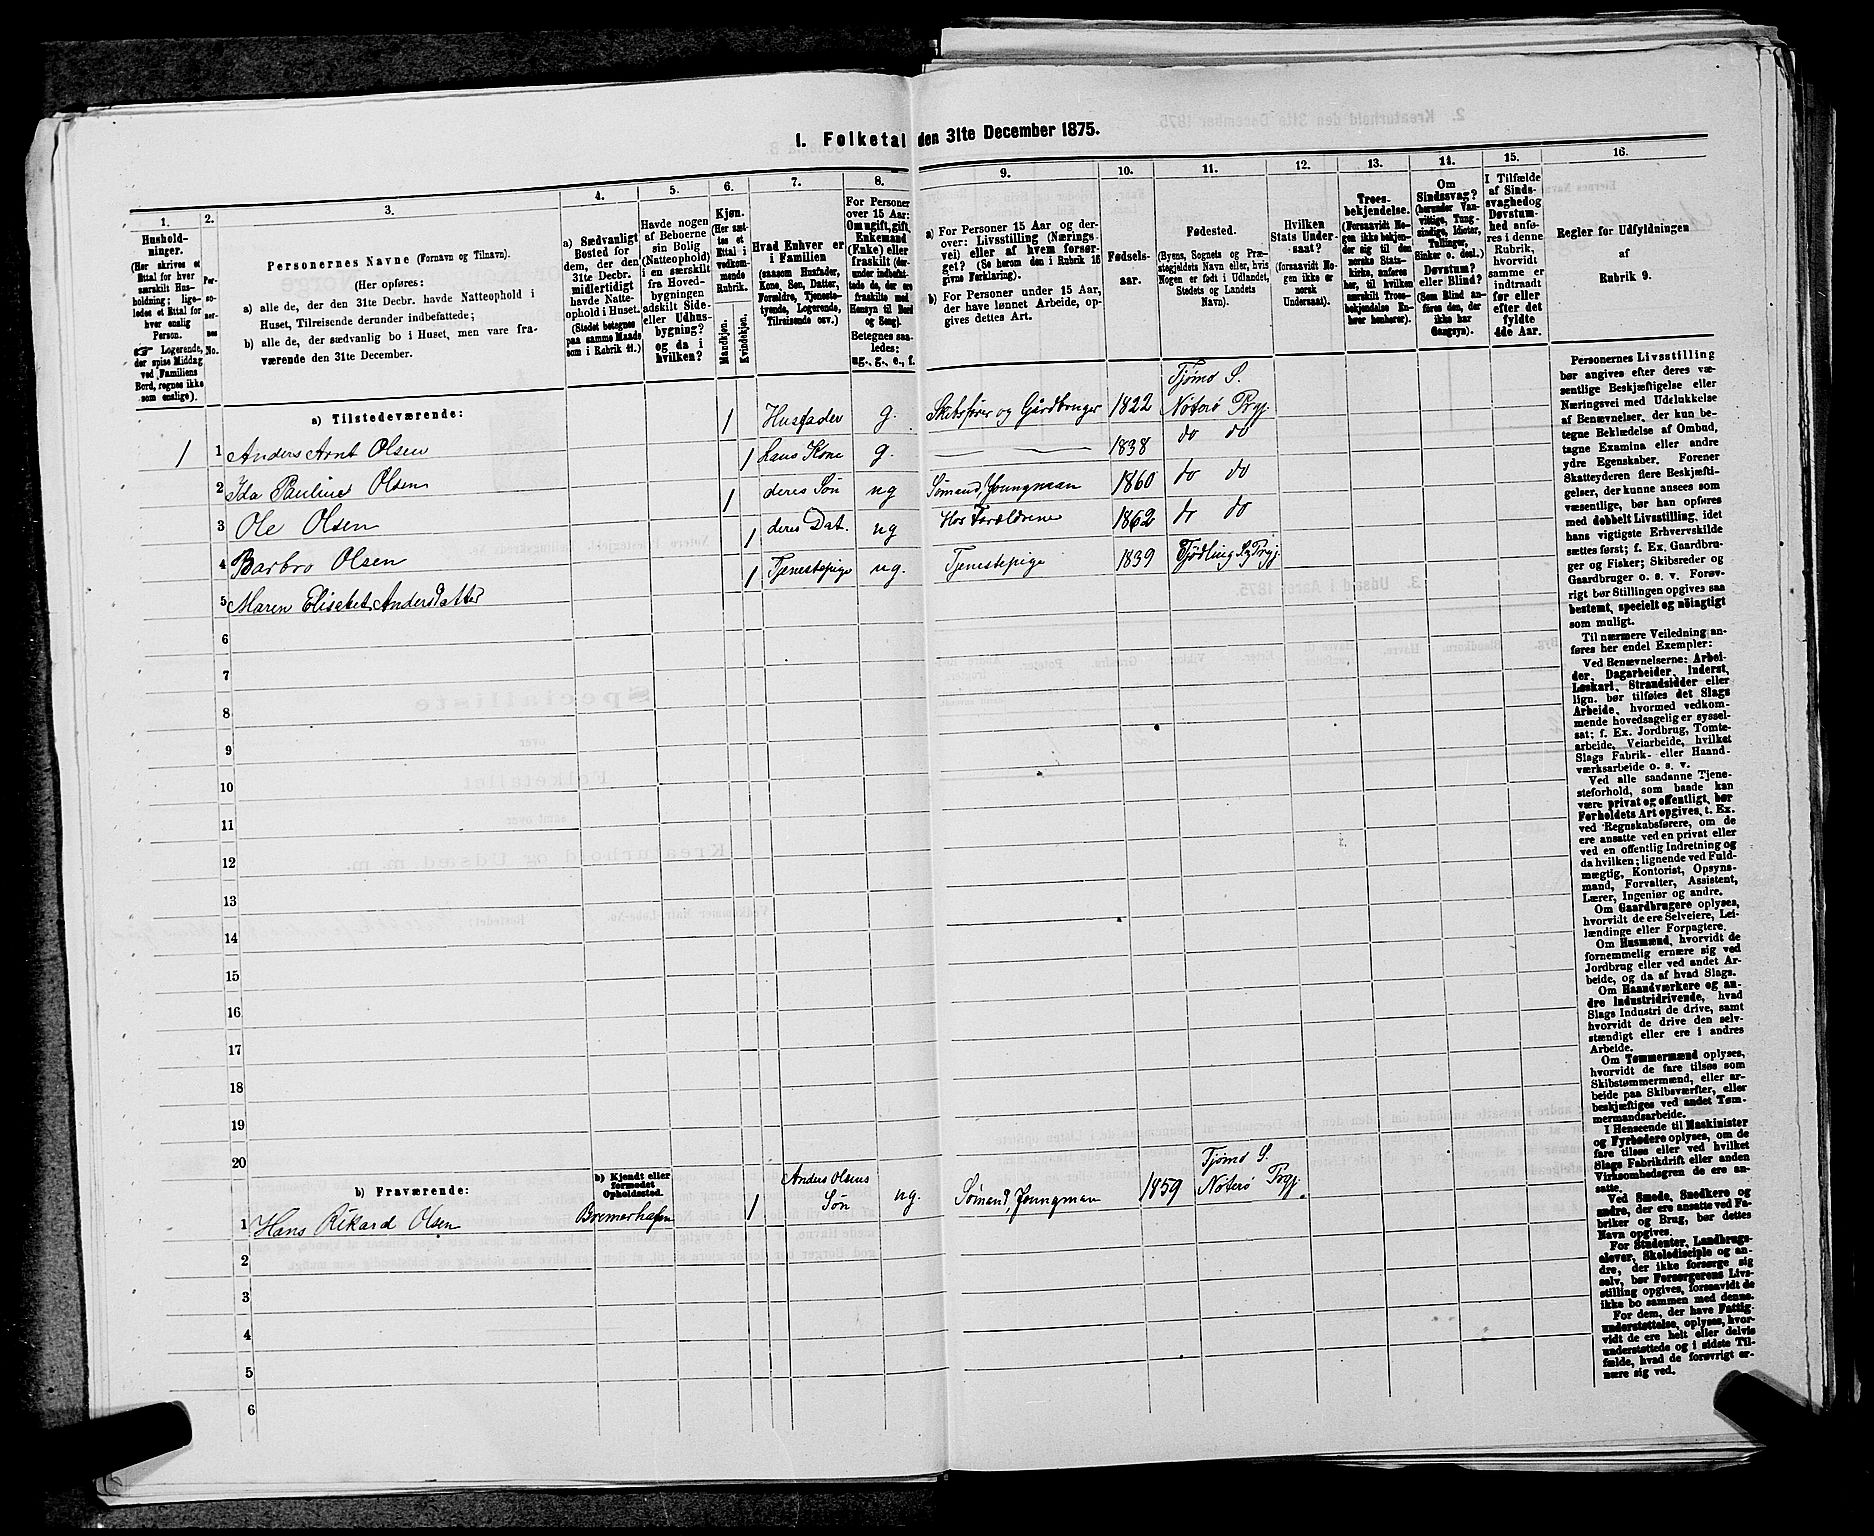 1. Folketal den 31te December 1875.
1.
2.
3.
4.
5.
6.
7.
8.
9.
10.
11.
12.
13.
14.
15.
16.
Hushold-
ninger.
(Her skrives et
Ettal for hver
særskilt Hus-
holdning; lige-
ledes et Ettal for
hver enslig
Person.
☞ Logerende,
der spise Middag
ved Familiens
Bord, regnes ikke
som enslige).
Per-
so-
ner-
nes
No.
Personernes Navne (Fornavn og Tilnavn).
(Her opføres:
a) alle de, der den 31te Decbr. havde Natteophold i
Huset, Tilreisende derunder indbefattede;
b) alle de, der sædvanlig bo i Huset, men vare fra-
værende den 31te December.
a) Sædvanligt
Bosted for
dem, der den
31te Decbr.
midlertidigt
havde Natte-
ophold i Huset.
(Stedet betegnes
paa samme Maade
som i Rubrik 11.)
Havde nogen
af Beboerne
sin Bolig
(Natteophold)
i en særskilt
fra Hoved-
bygningen
adskilt Side-
eller Udhus-
bygning?
og da i
hvilken?
Kjøn.
(Her sæt-
tes et
Ettal i
vedkom-
mende
Rubrik.
Mandkjøn.
Kvindekjøn.
Hvad Enhver er
i Familien
(saasom Husfader,
Kone, Søn, Datter,
Forældre, Tjeneste-
tyende, Logerende,
Tilreisende osv.)
For Personer
over 15 Aar:
Om ugift, gift,
Enkemand
(Enke) eller
fraskilt (der-
under indbefat-
tede de, der ere
fraskilte med
Hensyn til Bord
og Seng).
Betegnes saa-
ledes:
ug., g., e., f.
a) For Personer 15 Aar og der-
over: Livsstilling (Nærings-
vei) eller af hvem forsør-
get? (Se herom den i Rubrik 16
givne Forklaring).
b) For Personer under 15 Aar,
der have lønnet Arbeide, op-
gives dettes Art.
Fødsels-
aar.
Fødested.
(Byens, Sognets og Præ-
stegjeldets Navn eller, hvis
Nogen er født i Udlandet,
Stedets og Landets
Navn).
Hvilken
Stats Under-
saat?
(forsaavidt No-
gen ikke er
norsk
Undersaat).
Troes-
bekjendelse.
(Forsaavidt No-
gen ikke bekjen-
der sig til den
norske Stats-
kirke, anføres
her, til hvilken
særskilt Troes-
bekjendelse En-
hver henhører).
Om
Sindssvag?
(herunder Van-
vittige, Tung-
sindige, Idioter,
Tullinger,
Sinker o. desl.)
Døvstum?
eller Blind?
(Som Blind an-
føres den, der
ikke har
Gangsyn).
I Tilfælde
af Sinds-
svaghed og
Døvstum-
hed anfø-
res i denne
Rubrik,
hvorvidt
samme er
indtraadt
før eller
efter det
fyldte
4de Aar.
Regler for Udfyldningen
af
Rubrik 9.
a) Tilstedeværende:
1 1 Anders Arnt Olsen 1 Husfader g. Skibsfører og Gårdbruger 1822 Tjømø S.
Nøterø Prgj.
2 Ida Pauline Olsen 1 hans Kone g. 1838 do do
3 Ole Olsen 1 deres Søn ug Sømand, Joungman 1860 do do
4 Barbro Olsen 1 deres Dat. ug Hos Forældrene 1862 do do
5 Maren Elisabet Andersdatter 1 Tjenestepige ug. Tjenestepige 1839 Tjødling S. Prgj.
6
7
8
9
10
11
12
13
14
15
16
17
18
19
20
b) Fraværende:
b) Kjendt eller
formodet
Opholdssted.
1 Hans Rikard Olsen Bremerhafen 1 Anders Olsens
Søn ug. Sømand, Joungman 1859 Tjømø S.
Nøterø Prgj.
2
3
4
5
6
Personernes Livsstilling
bør angives efter deres væ-
sentlige Beskjæftigelse eller
Næringsvei med Udelukkelse
af Benævnelser, der kun be-
tegne Beklædelse af Ombud,
tagne Examina eller andre
ydre Egenskaber. Forener
Skatteyderen flere Beskjæfti-
gelser, der kunne ansees som
væsentlige, bør han opføres
med dobbelt Livsstilling, idet
hans vigtigste Erhvervskilde
sættes først; f. Ex. Gaardbru-
ger og Fisker; Skibsreder og
Gaardbruger o. s. v. Forøv-
rigt bør Stillingen opgives saa
bestemt, specielt og nøiagtigt
som muligt.
Til nærmere Veiledning an-
føres her endel Exempler:
Ved Benævnelserne: Arbei-
der, Dagarbeider, Inderst,
Løskarl, Strandsidder eller
lign. bør tilføies det Slags
Arbeide, hvormed vedkom-
mende hovedsagelig er syssel-
sat; f. Ex. Jordbrug, Tomte-
arbeide, Veiarbeide, hvilket
Slags Fabrik- eller Haand-
værksarbeide o. s. v.
Ved alle saadanne Tjene-
steforhold, som baade kan
være privat og offentligt, bør
Forholdets Art opgives, t. Ex.
ved Regnskabsførere, om de
ere ansatte ved en privat eller
ved en offentlig Indretning og
da hvilken; lignende ved Fuld-
mægtig, Kontorist, Opsyns-
mand, Forvalter, Assistent,
Lærer, Ingeniør og andre.
Om Gaardbrugere oplyses,
hvorvidt de ere Selveiere, Lei-
lændinge eller Forpagtere.
Om Husmænd, hvorvidt de
fornemmelig ernære sig ved
Jordbrug eller ved andet Ar-
beide, og da af hvad Slags.
Om Haandværkere og an-
dre Industridrivende, hvad
Slags Industri de drive, samt
hvorvidt de drive den selv-
stændigt eller ere i andres
Arbeide.
Om Tømmermænd oplyses,
hvorvidt de fare tilsøs som
Skibstømmermænd, eller ar-
beide paa Skibsværfter, eller
beskjæftiges ved andet Tøm-
mermandsarbeide.
I Henseende til Maskinister
og Fyrbødere oplyses, om de
fare tilsøs eller ved hvilket
Slags Fabrikdrift eller anden
Virksomhedsgren de ere an-
satte.
Ved Smede, Snedkere og
andre, der ere ansatte ved Fa-
briker og Brug, bør dettes
Navn opgives.
For Studenter, Landbrugs-
elever, Skoledisciple og an-
dre, der ikke forsørge sig
selv, bør Forsørgerens Livs-
stilling opgives, forsaavidt de
ikke bo sammen med denne.
For dem, der have Fattig-
understøttelse, oplyses, hvor-
vidt de ere helt eller delvis
understøttede og i sidste Til-
fælde, hvad de forøvrigt er-
nære sig ved.